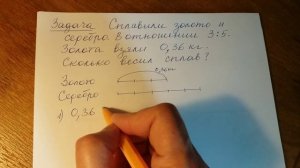 Задача Сплавили золото и
серебро в отношении 3:5.
Золота взяли 0,36 кг.
Сколько весил сплав?
0,36кг
Золото
Серебро
1) 0,36